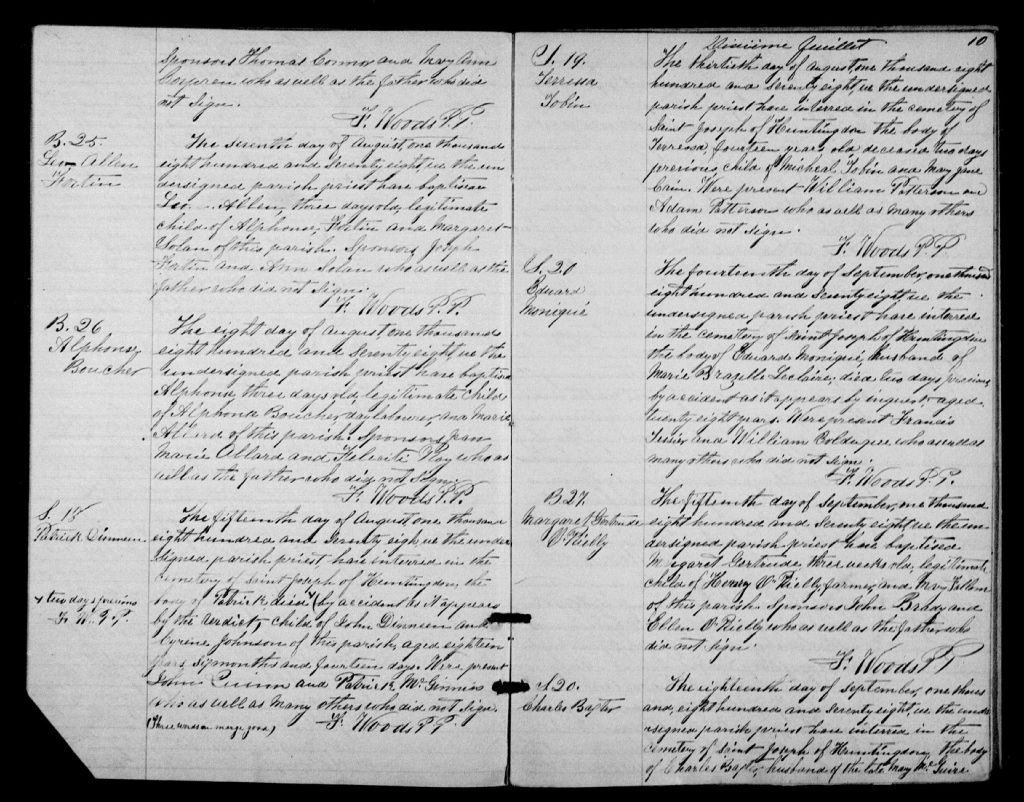 Sponsors Thomas Connor and Mary Ann
who as well as the father who did
not sign.
F. Woods P.P.
B. 25.
Leo Allen
Fortin
The seventh day of August, one thousand
eight hundred and seventy eight, we the un
dersigned parish priest have baptised
Leo Allen, three days old, legitimate
child of Alphonse Fortin and Margaret
Solan of this parish. Sponsors Joseph
Fortin and Ann Solan who as well as the
father who did not sign.
F. Woods P.P.
B. 26
Alphonse
Boucher
The eight day of August, one thousand
eight hundred and seventy eight, we the
undersigned parish priest have baptised
Alphonse, three days old, legitimate child
of Alphonse Boucher, day labourer, and Marie
Allard of this parish. Sponsors Jean
Marie Allard and Feliciti Roy who as
well as the father who did not sign.
F. Woods P.P.
S. 18
Patrick Dinneen
+ two days previous
F. W. P. P.
The fifteenth day of August one thousand
eight hundred and seventy eight we the under
signed parish priest have interred in the
cemetery of Saint Joseph of Huntingdon, the
body of Patrick died + (by accident as it appears
by the verdict) child of John Dinneen and
Cyrine Johnson of this parish, aged eighteen
years, six months and fourteen days. Were present
John Quinn and Patrick McGinnis
who as well as many others who did not sign.
(Three words in marge good) F. Woods P.P.
10
Dixième feuillet
S. 19.
Terressa
Tobin
The thirtieth day of August, one thousand eight
hundred and seventy eight, we the undersigned
parish priest have interred in the cemetery of
Saint Joseph of Huntingdon the body of
Terressa, fourteen years old deceased two days
previous child of Micheal Tobin and Mary Jane
Cain. Were present William Patterson and
Adam Patterson who as well as many others
who did not sign.
F. Woods P.P.
S. 20
Eduard
Moniqué
The fourteenth day of September, one thousand
eight hundred and seventy eight, we the
undersigned parish priest have interred
in the cemetery of Saint Joseph of Huntingdon
the body of Eduard Moniqué, husband of
Marie Brazelle Leclaire, died two days previous
by accident as it appears by inquest, aged
twenty eight years. Were present Francis
and William who as well as
many others who did not sign.
F. Woods P.P.
B 27.
Margaret Gertrude
O'Rielly
The fifteenth day of September, one thousand
eight hundred and seventy eight, we the un
dersigned parish priest have baptised
Margaret Gertrude, three weeks old, legitimate
child of Henry O'Rielly, farmer, and Mary Fallom
of this parish. Sponsors John Brady and
Ellen O'Rielly who as well as the father who
did not sign.
F. Woods P.P.
S 20.
Charles Baxter
The eighteenth day of September, one thous
and, eight hundred and seventy eight, we the unde
rsigned parish priest have interred in the
cemetery of Saint Joseph of Huntingdon, the body
of Charles Baxter, husband of the late Mary McGuire